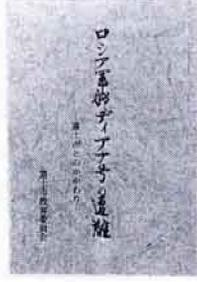 ロシア軍艦ディアナ号の遭難
富士市とのかかわり
富士市教育委員会